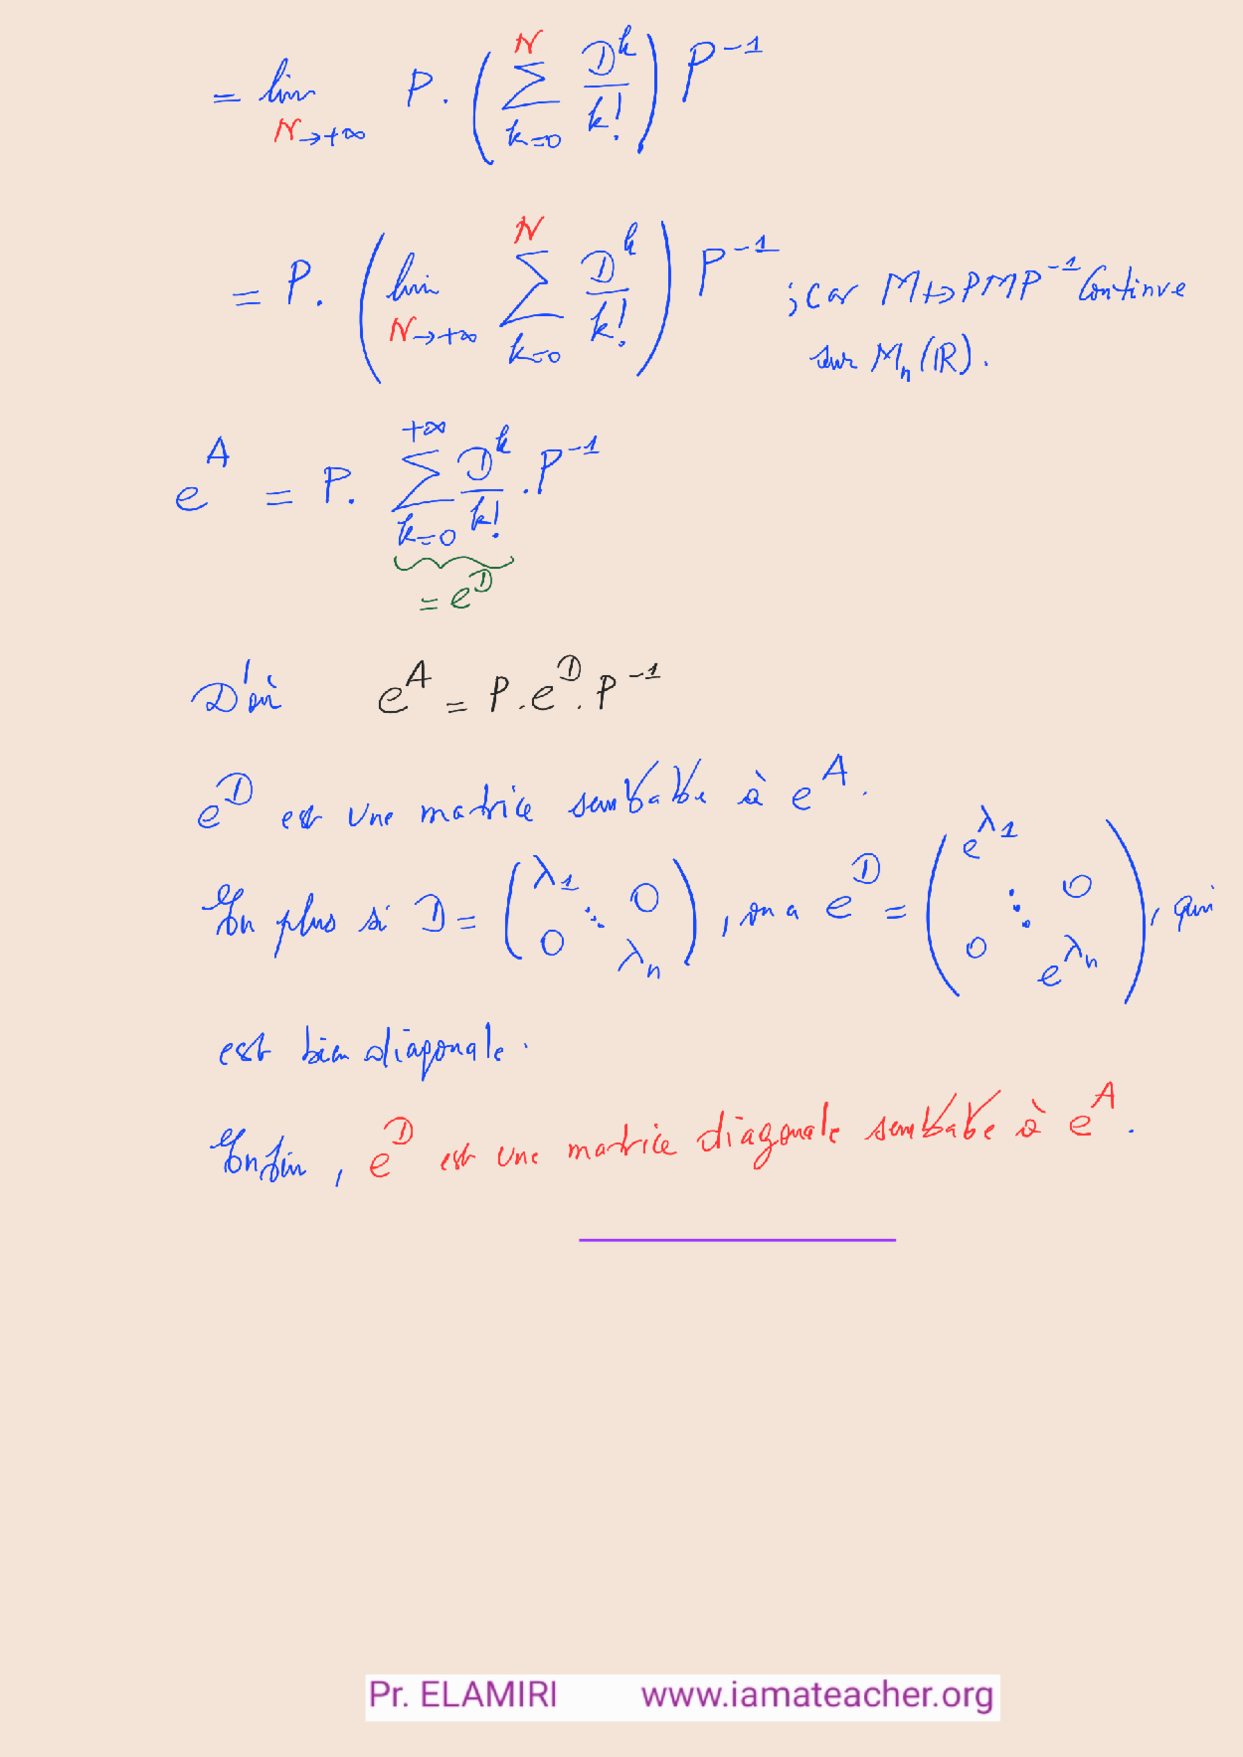 = lim_{N→+∞} P. ( ∑_{k=0}^{N} D^k / k! ) P^{-1}
= P. ( lim_{N→+∞} ∑_{k=0}^{N} D^k / k! ) P^{-1} ; car M ↦ PMP^{-1} Continue
sur M_n(ℝ).
e^A = P. ∑_{k=0}^{+∞} D^k / k! . P^{-1}
= e^D
D'où e^A = P . e^D . P^{-1}
e^D est une matrice semblable à e^A.
En plus si D = ( λ_1 ⋱ 0 0 λ_n ) , on a e^D = ( e^{λ_1} ⋱ 0 0 e^{λ_n} ) , qui
est bien diagonale.
Enfin, e^D est une matrice diagonale semblable à e^A.
Pr. ELAMIRI www.iamateacher.org